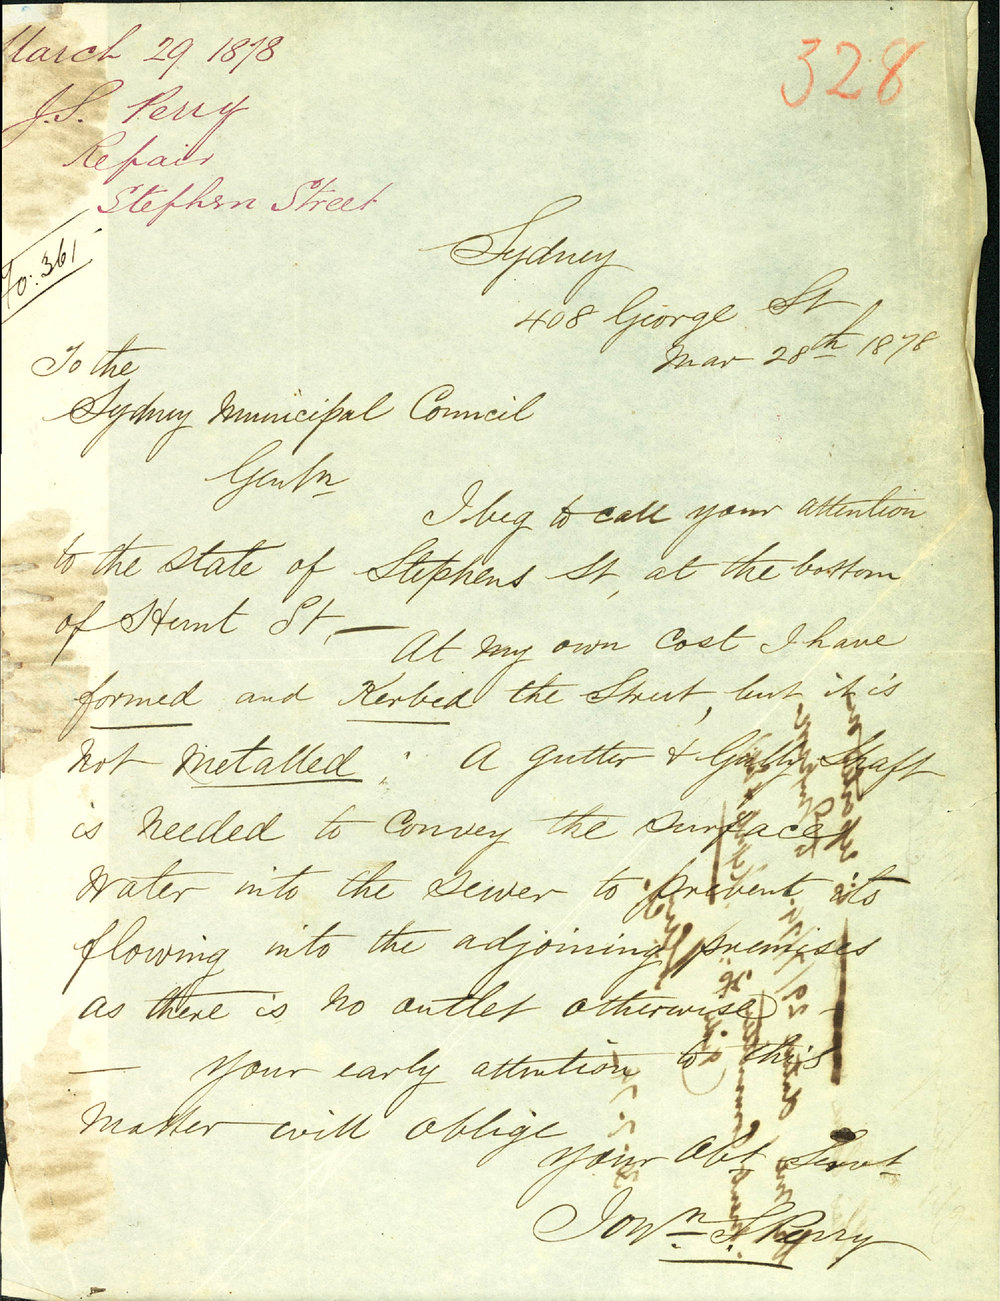 March 29 1878
J.S. Perry
Repair
Stephen Street
328
Fo: 361
Sydney
408 George St
Mar 28th 1878
To the
Sydney Municipal Council
Gentn
I beg to call your attention
to the state of Stephens St, at the bottom
of Hunt St, — At my own cost I have
formed and Kerbed the Street, but it is
not metalled; A gutter & Gully Shaft
is needed to convey the surface
water into the sewer to prevent its
flowing into the adjoining premises
as there is no outlet otherwise –
— Your early attention to this
matter will oblige
Your Obt Servt
S Perry